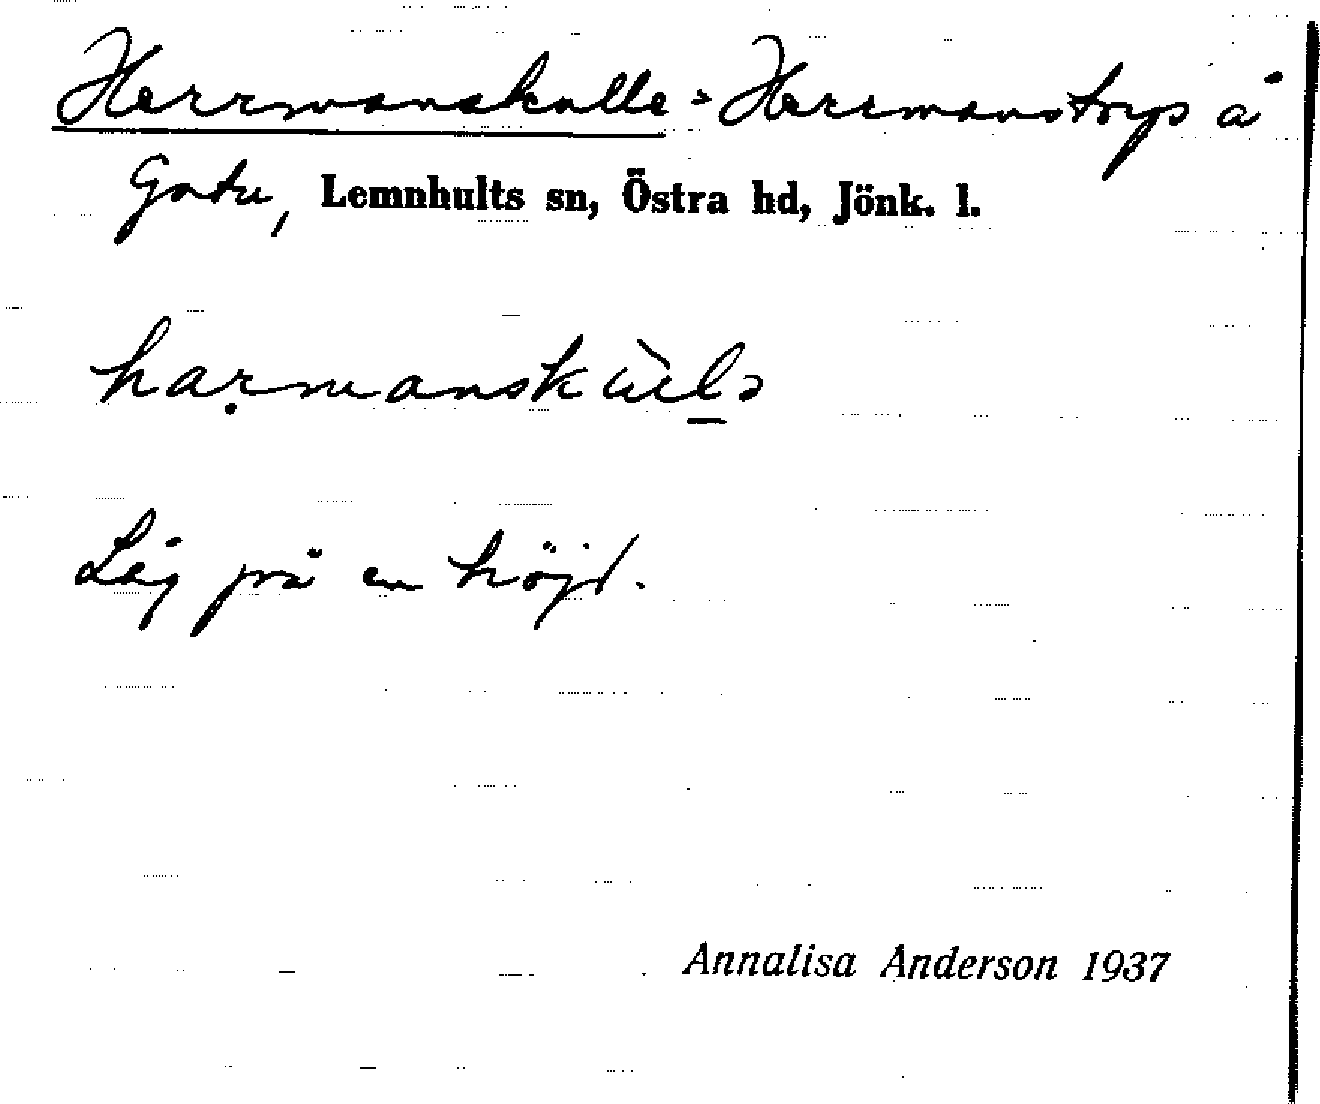 Herrmanskulle = Herrmanstorps å
Gatu, Lemnhults sn, Östra hd, Jönk. l.
Låg på en höjd.
Annalisa Anderson 1937